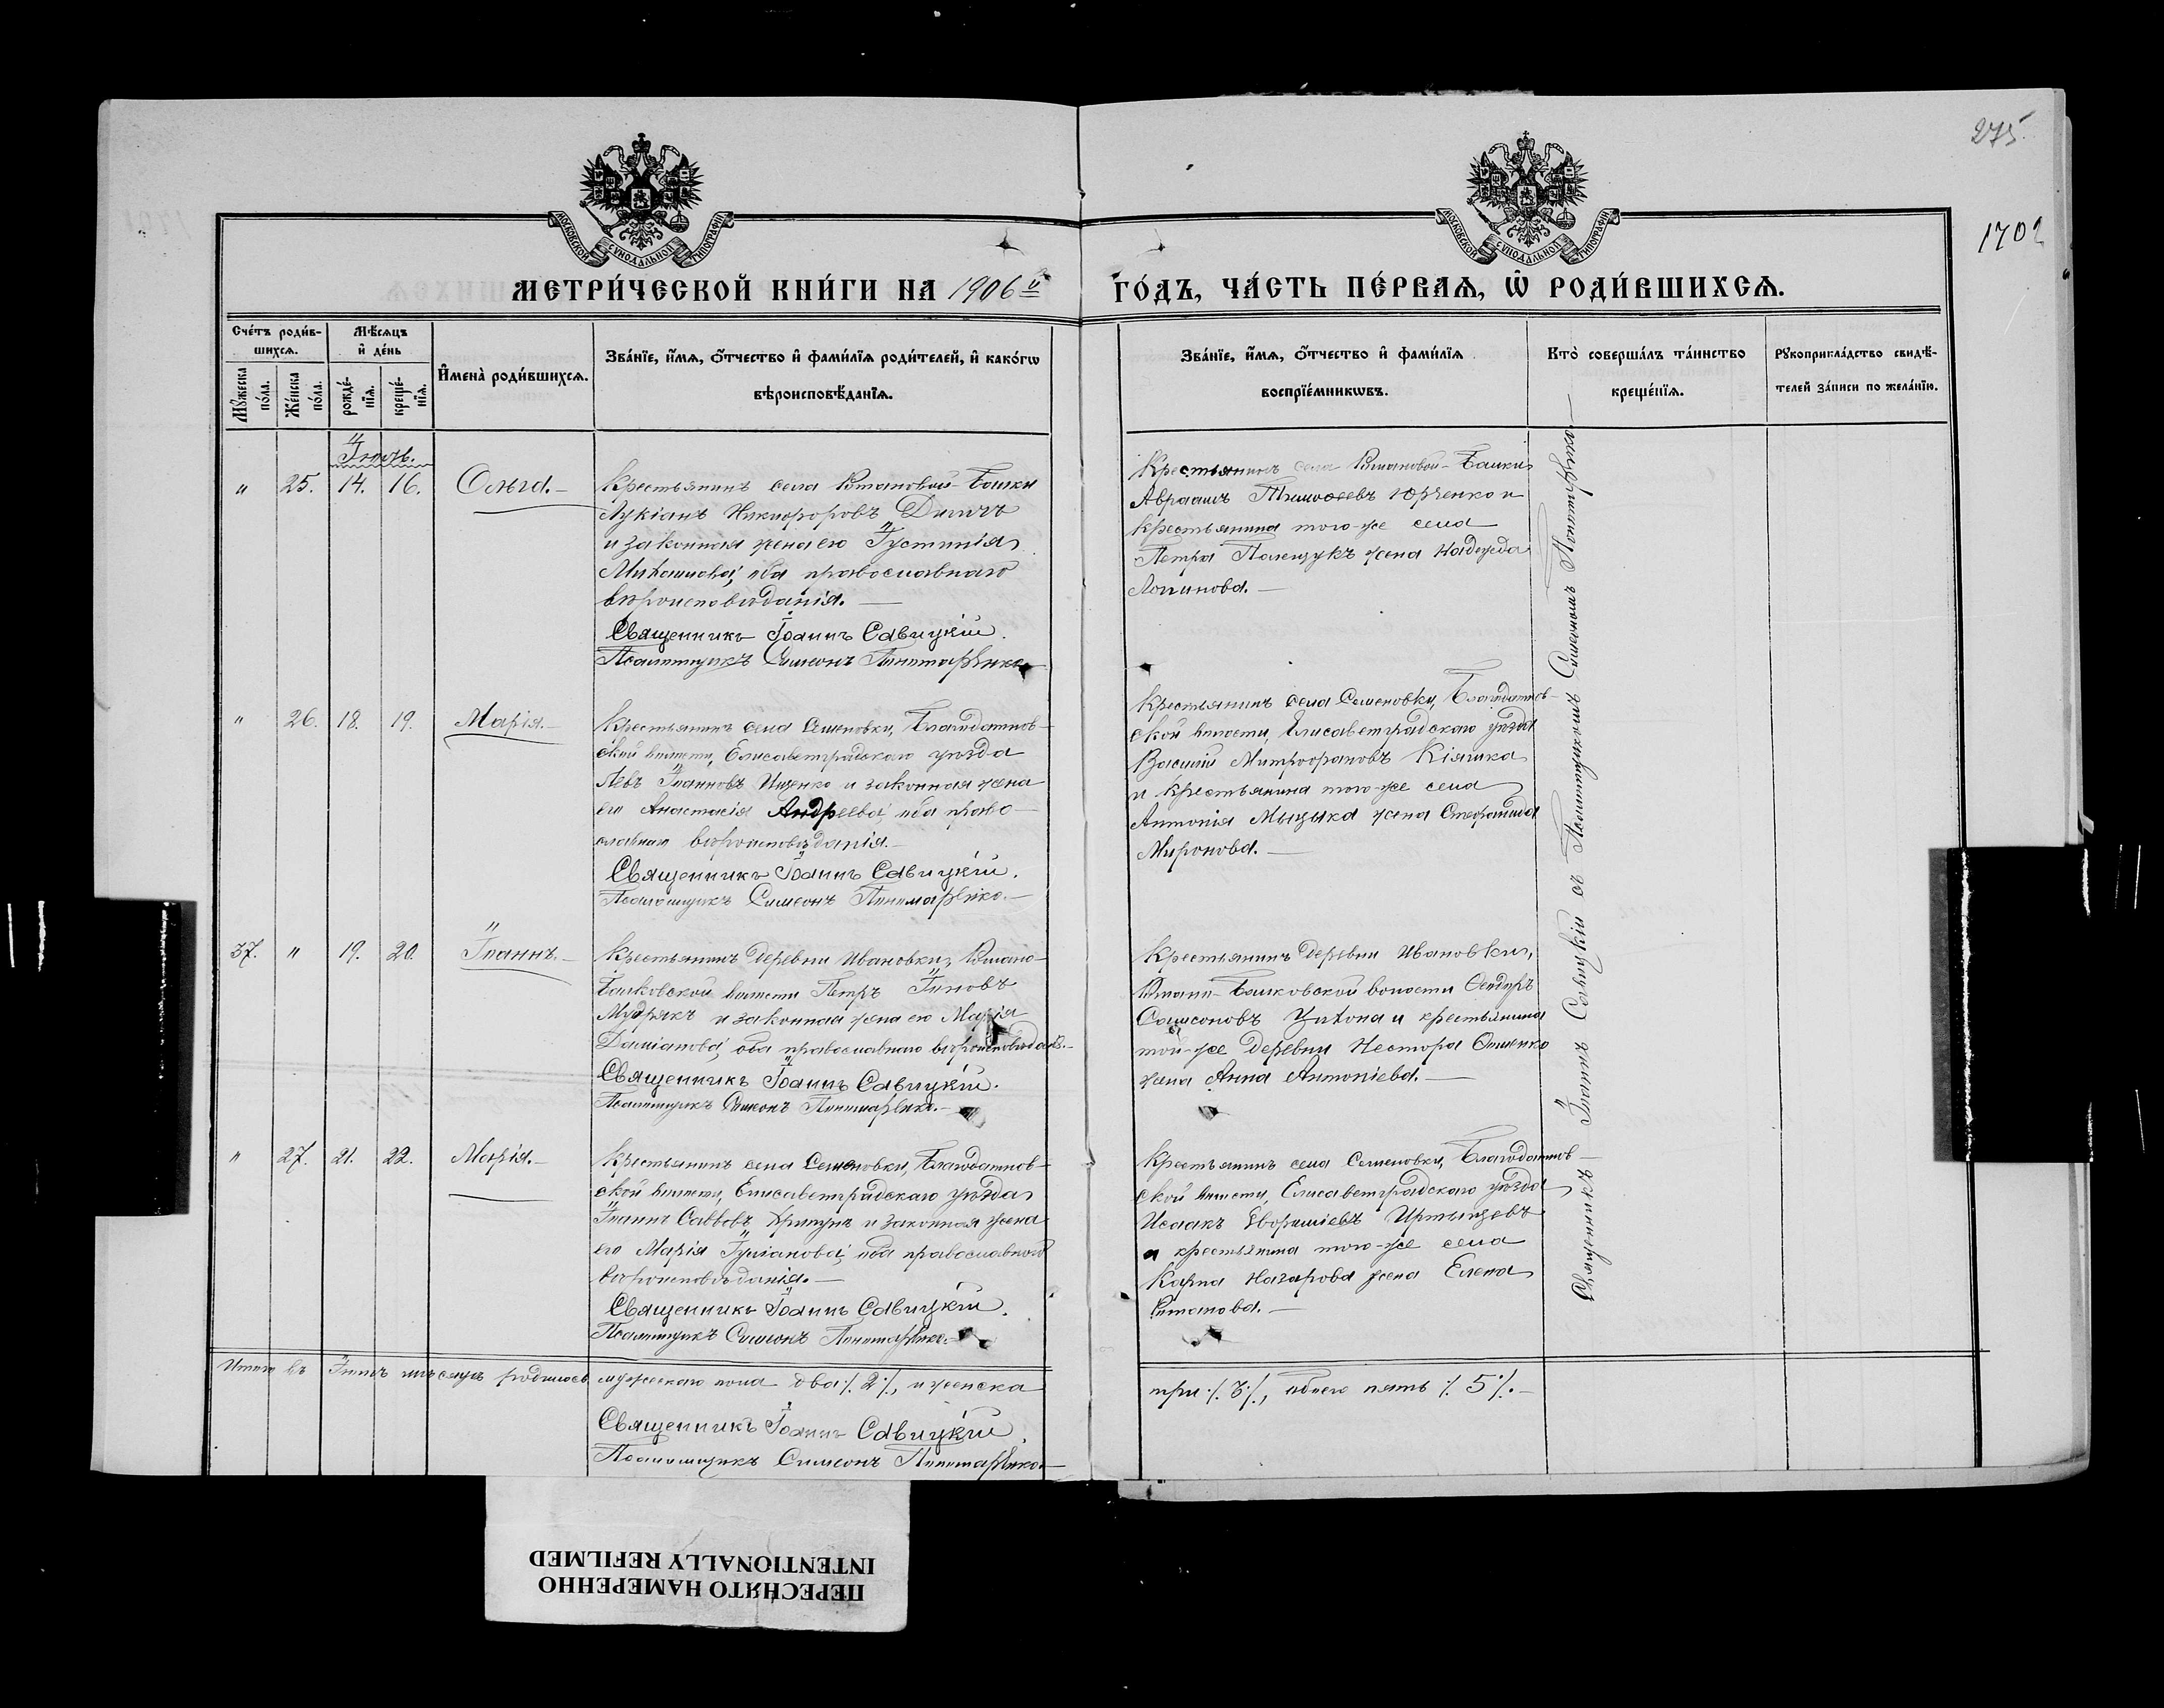 275
1702
МОСКОВСКОЙ СУНОДАЛЬНОЙ ТИПОГРАФІИ
МОСКОВСКОЙ СУНОДАЛЬНОЙ ТИПОГРАФІИ
МЕТРИ́ЧЕСКОЙ КНИ́ГИ НА 1906й ГО́ДЪ, ЧА́СТЬ ПЕ́РВАѦ, Ѡ РОДИ́ВШИХСѦ.
Сче́тъ роди́в-
шихсѧ.
Мѹ́жеска по́ла.
Же́нска по́ла.
Мѣ́сѧцъ
и де́нь
рожде́-
нїѧ.
креще́-
нїѧ.
Имена̀ роди́вшихсѧ.
Зва́нїе, и́мѧ, о́тчество и фами́лїѧ роди́телей, и како́гѡ
вѣроисповѣ́данїѧ.
Зва́нїе, и́мѧ, о́тчество и фами́лїѧ
воспрїе́мникѡвъ.
Кто̀ соверша́лъ та́инство
креще́нїѧ.
Рѹкоприкла́дство свидѣ́-
телей за́писи по жела́нїю.
Іюль.
" 25. 14. 16. Ольга.
Крестьянинъ села Юмановой-Балки
Лукіанъ Никифоровъ
и законная жена его Іустинія
оба православнаго
вѣроисповѣданія.
Священникъ Іоаннъ Савицкій.
Псаломщикъ Симеонъ
Крестьянинъ села Юмановой-Балки
Авраамъ Тимоѳеевъ Юрченко и
крестьянина того-же села
Петра Полещукъ жена Надежда
Логинова.
" 26. 18. 19. Марія.
Крестьянинъ села Семеновки, Благодатнов-
ской волости, Елисаветградскаго уѣзда
Левъ Іоанновъ Ищенко и законная жена
его Анастасія Андреева, оба право-
славнаго вѣроисповѣданія.
Священникъ Іоаннъ Савицкій.
Псаломщикъ Симеонъ
Крестьянинъ села Семеновки, Благодатнов-
ской волости, Елисаветградскаго уѣзда
Василій Митрофановъ Кіяшка
и крестьянина того-же села
Антонія Мызыка жена Стефанида
Миронова.
37. " 19. 20. Іоаннъ.
Крестьянинъ деревни Ивановки, Юмано-
Балковской волости Петръ
Мудрякъ и законная жена его Марія
Даміанова, оба православнаго вѣроисповѣдан.
Священникъ Іоаннъ Савицкій.
Псаломщикъ Симеонъ
Крестьянинъ деревни Ивановки,
Юмано-Балковской волости
Самсоновъ и крестьянина
той-же деревни Нестора
жена Анна Антоніева.
" 27. 21. 22. Марія.
Крестьянинъ села Семеновки, Благодатнов-
ской волости, Елисаветградскаго уѣзда
Іоаннъ Савовъ и законная жена
его Марія Іуліанова, оба православнаго
вѣроисповѣданія.
Священникъ Іоаннъ Савицкій.
Псаломщикъ Симеонъ
Крестьянинъ села Семеновки, Благодатнов-
ской волости, Елисаветградскаго уѣзда
Исаакъ
и крестьянина того-же села
Карпа Назарова жена Елена
Священникъ Іоаннъ Савицкій съ Псаломщикомъ Симеономъ
Итого въ Іюлѣ мѣсяцѣ родилось мужескаго пола два ·/. 2 ·/., и женска три ·/. 3 ·/., обоего пять ·/. 5 ·/.
Священникъ Іоаннъ Савицкій.
Псаломщикъ Симеонъ
ПЕРЕСНЯТО НАМЕРЕННО
INTENTIONALLY REFILMED